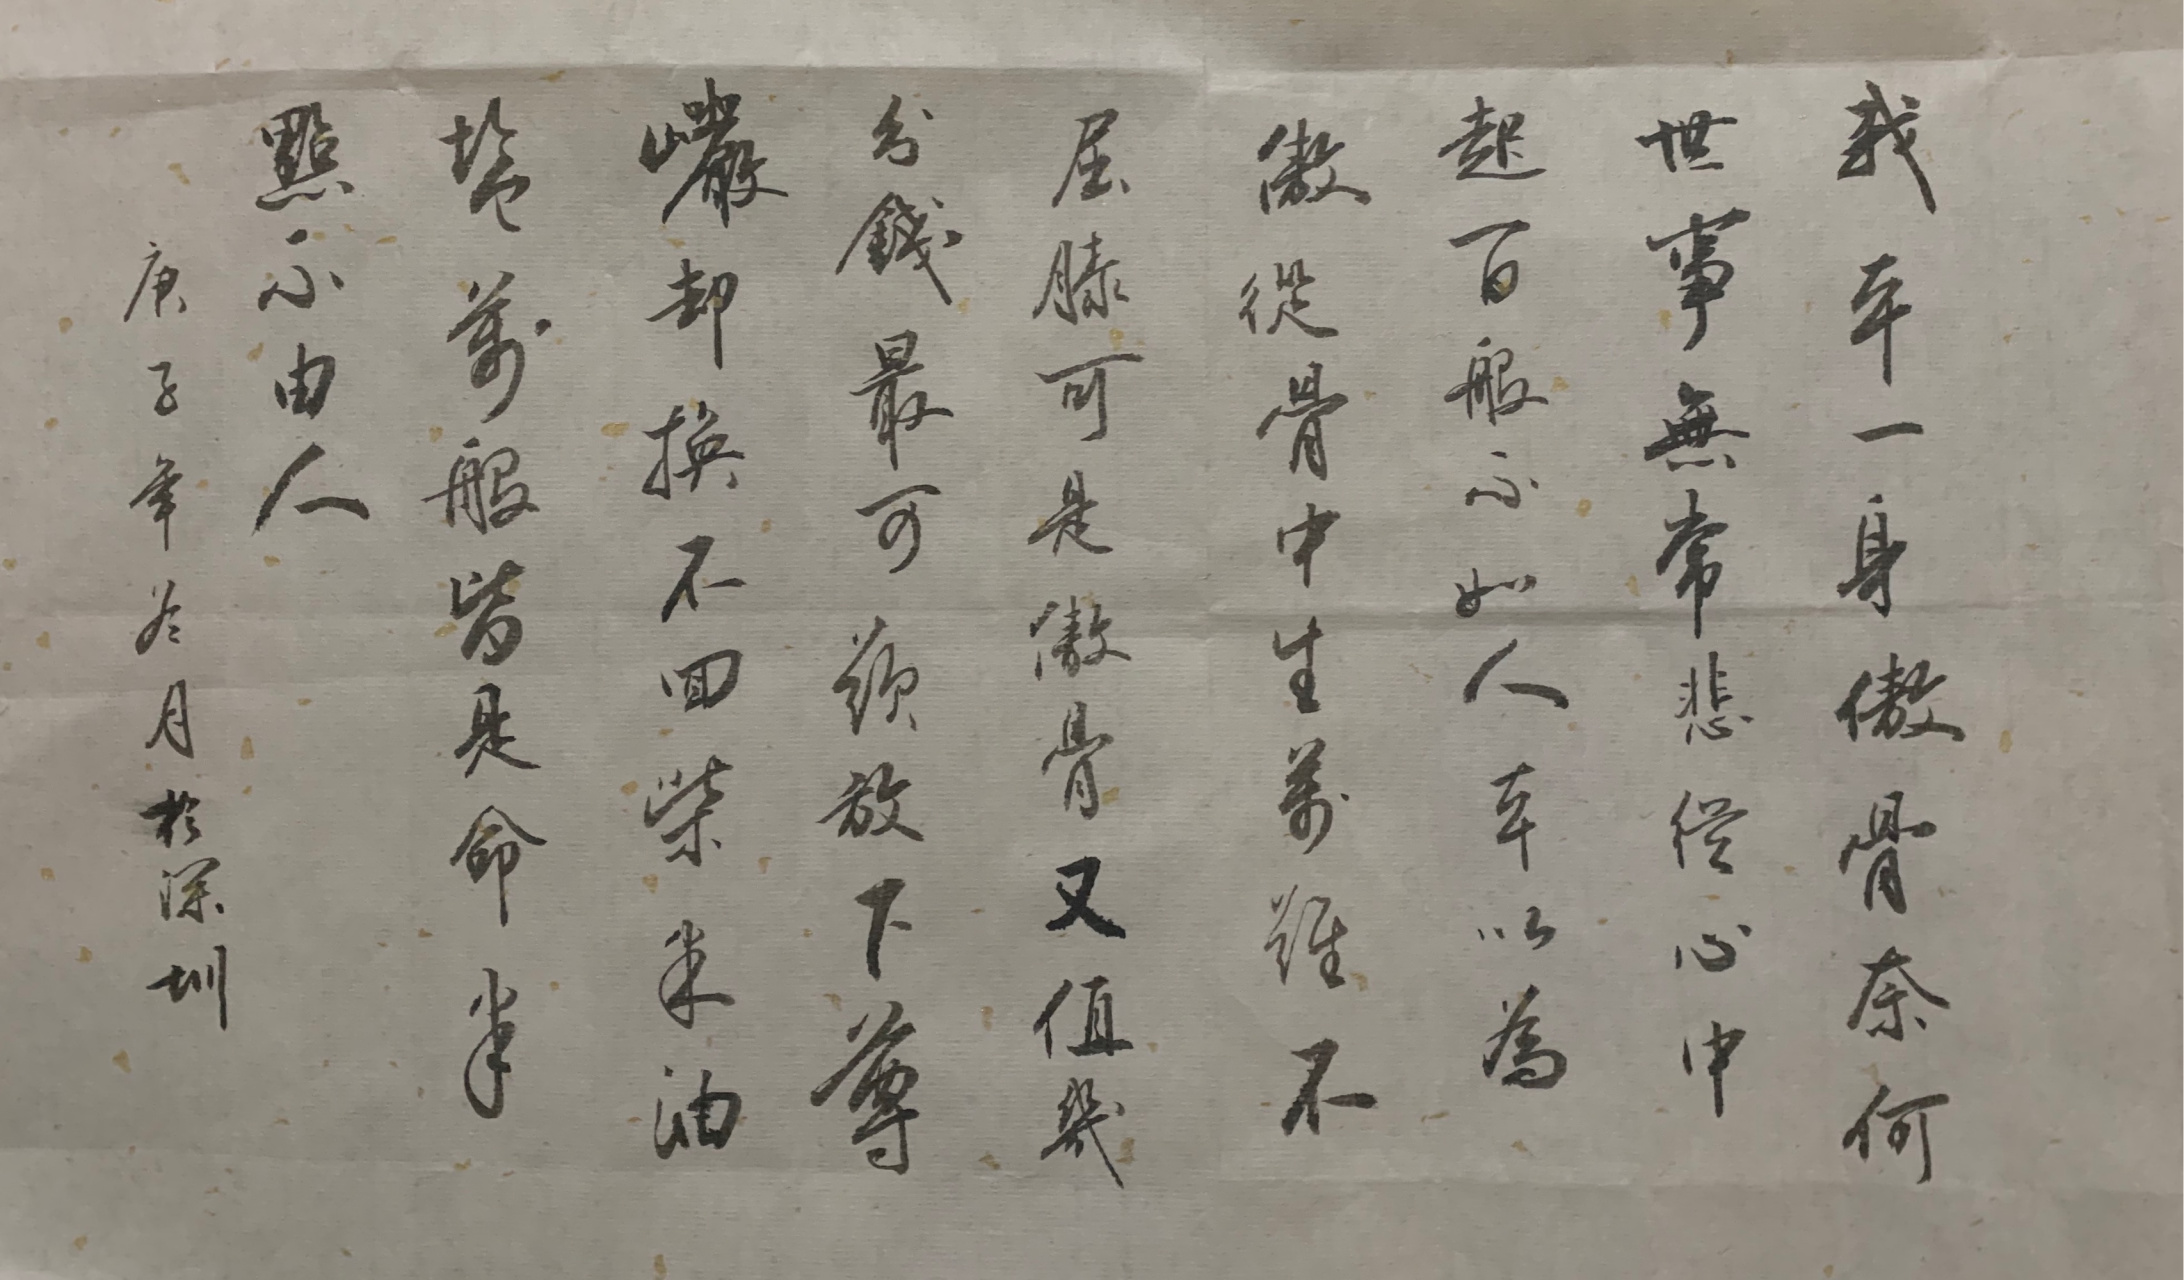 我本一身傲骨奈何
世事無常悲從心中
起百般不如人本以為
傲從骨中生萬難不
屈膝可是傲骨又值幾
分錢最可頌放下尊
巖却換不回柴米油
鹽萬般皆是命半
點不由人
庚子年冬月於深圳